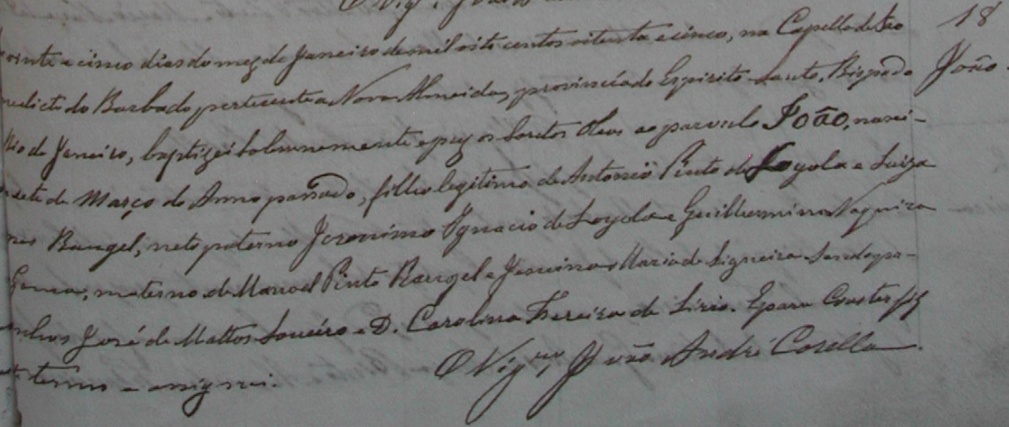 O Vigr. João
vinte e cinco dias do mez de Janeiro de mil oito centos oitenta e cinco, na Capella de São 18
nedicto do Barbado pertencente a Nova Almeida, provincia do Espirito-Santo, Bispado João.
Rio de Janeiro, baptizei solemnemente e puz os Santos Oleos ao parvulo João, nasci-
sete de Março do Anno passado, filho legitimo de Antonio Pinto de Loyola e Luiza
Rangel, neto paterno Jeronimo Ignacio de Loyola e Guilhermina
materno de Manoel Pinto Rangel e Joaquina Maria de Siqueira Sendo pa-
José de Mattos Loureiro e D. Carolina Pereira de Sirio. E para Constar fiz
termo e assignei. O Vigro João André Casella